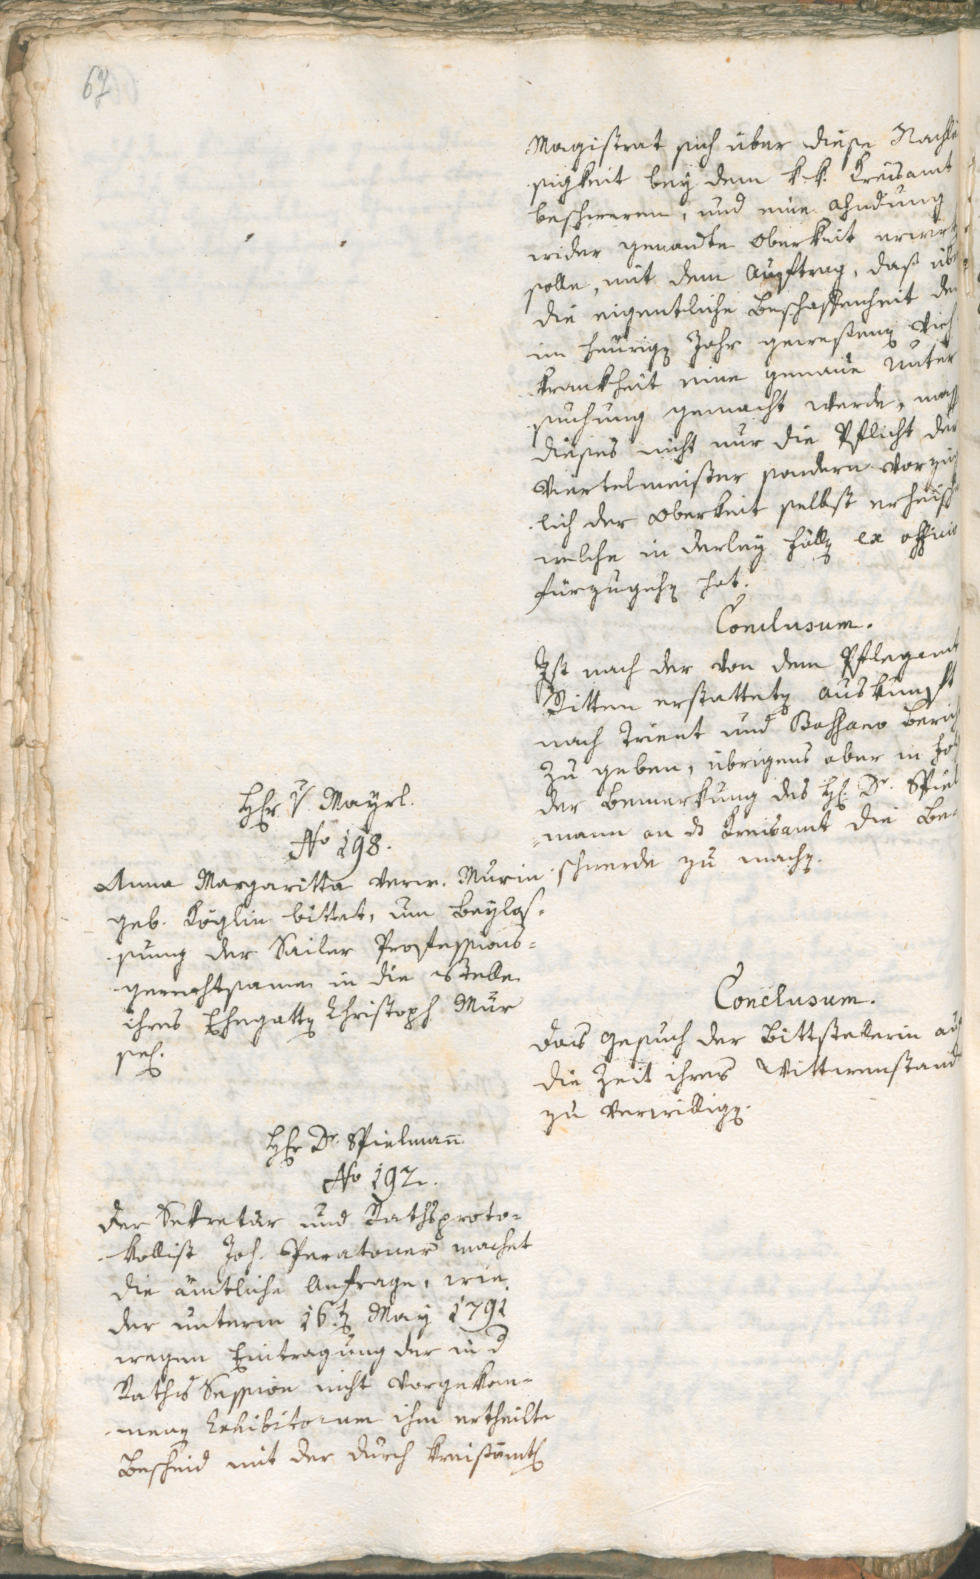 67
Magistrat sich über diese Nachlä
sigkeit bey dem k. k. Kreisamt
beschweren, und eine Ahndung
wider genandte Oberkeit erwirk
solle, mit dem Auftrag, daß üb
die eigentliche Beschaffenheit de
im heurigen Jahr gewesenen Vieh
krankheit eine genaue Unter
suchung gemacht werde, mas
dieses nicht nur die Pflicht de
Viertelmeister sondern vorzüg
lich der Oberkeit selbst erheisch
welche in derley Fällen ex officio
fürzugehen hat.
Conclusum.
Ist nach der von dem Pflegamt
Ritten erstatteten Auskunft
nach Trient und Bassano Berich
zu geben, übrigens aber in Fol
der Bemerkung des Hh. Dr. Spiel
=mann an ds Kreisamt die Be=
schwerde zu machen.
Hhr v Mayrl.
No 198.
Anna Margaritta verw. Murin
geb. Köglin bittet, um Beylas=
sung der Sailer Professions=
gerechtsame in die Stelle
ihres Ehegatten Christoph Mur
sel.
Conclusum.
Das Gesuch der Bittstellerin auf
die Zeit ihres Wittwenstand
zu verwilligen.
Hhr Dr. Spielmann
No 192.
Der Sekretär und Rathsproto=
kollist Joh. Peratoner machet
die amtliche Anfrage, wie
der unterm 16.ten May 1791
wegen Eintragung der in d
Raths Session nicht vorgekom=
menen Exhibitorum ihm ertheilte
Bescheid mit der durch kreisämtl